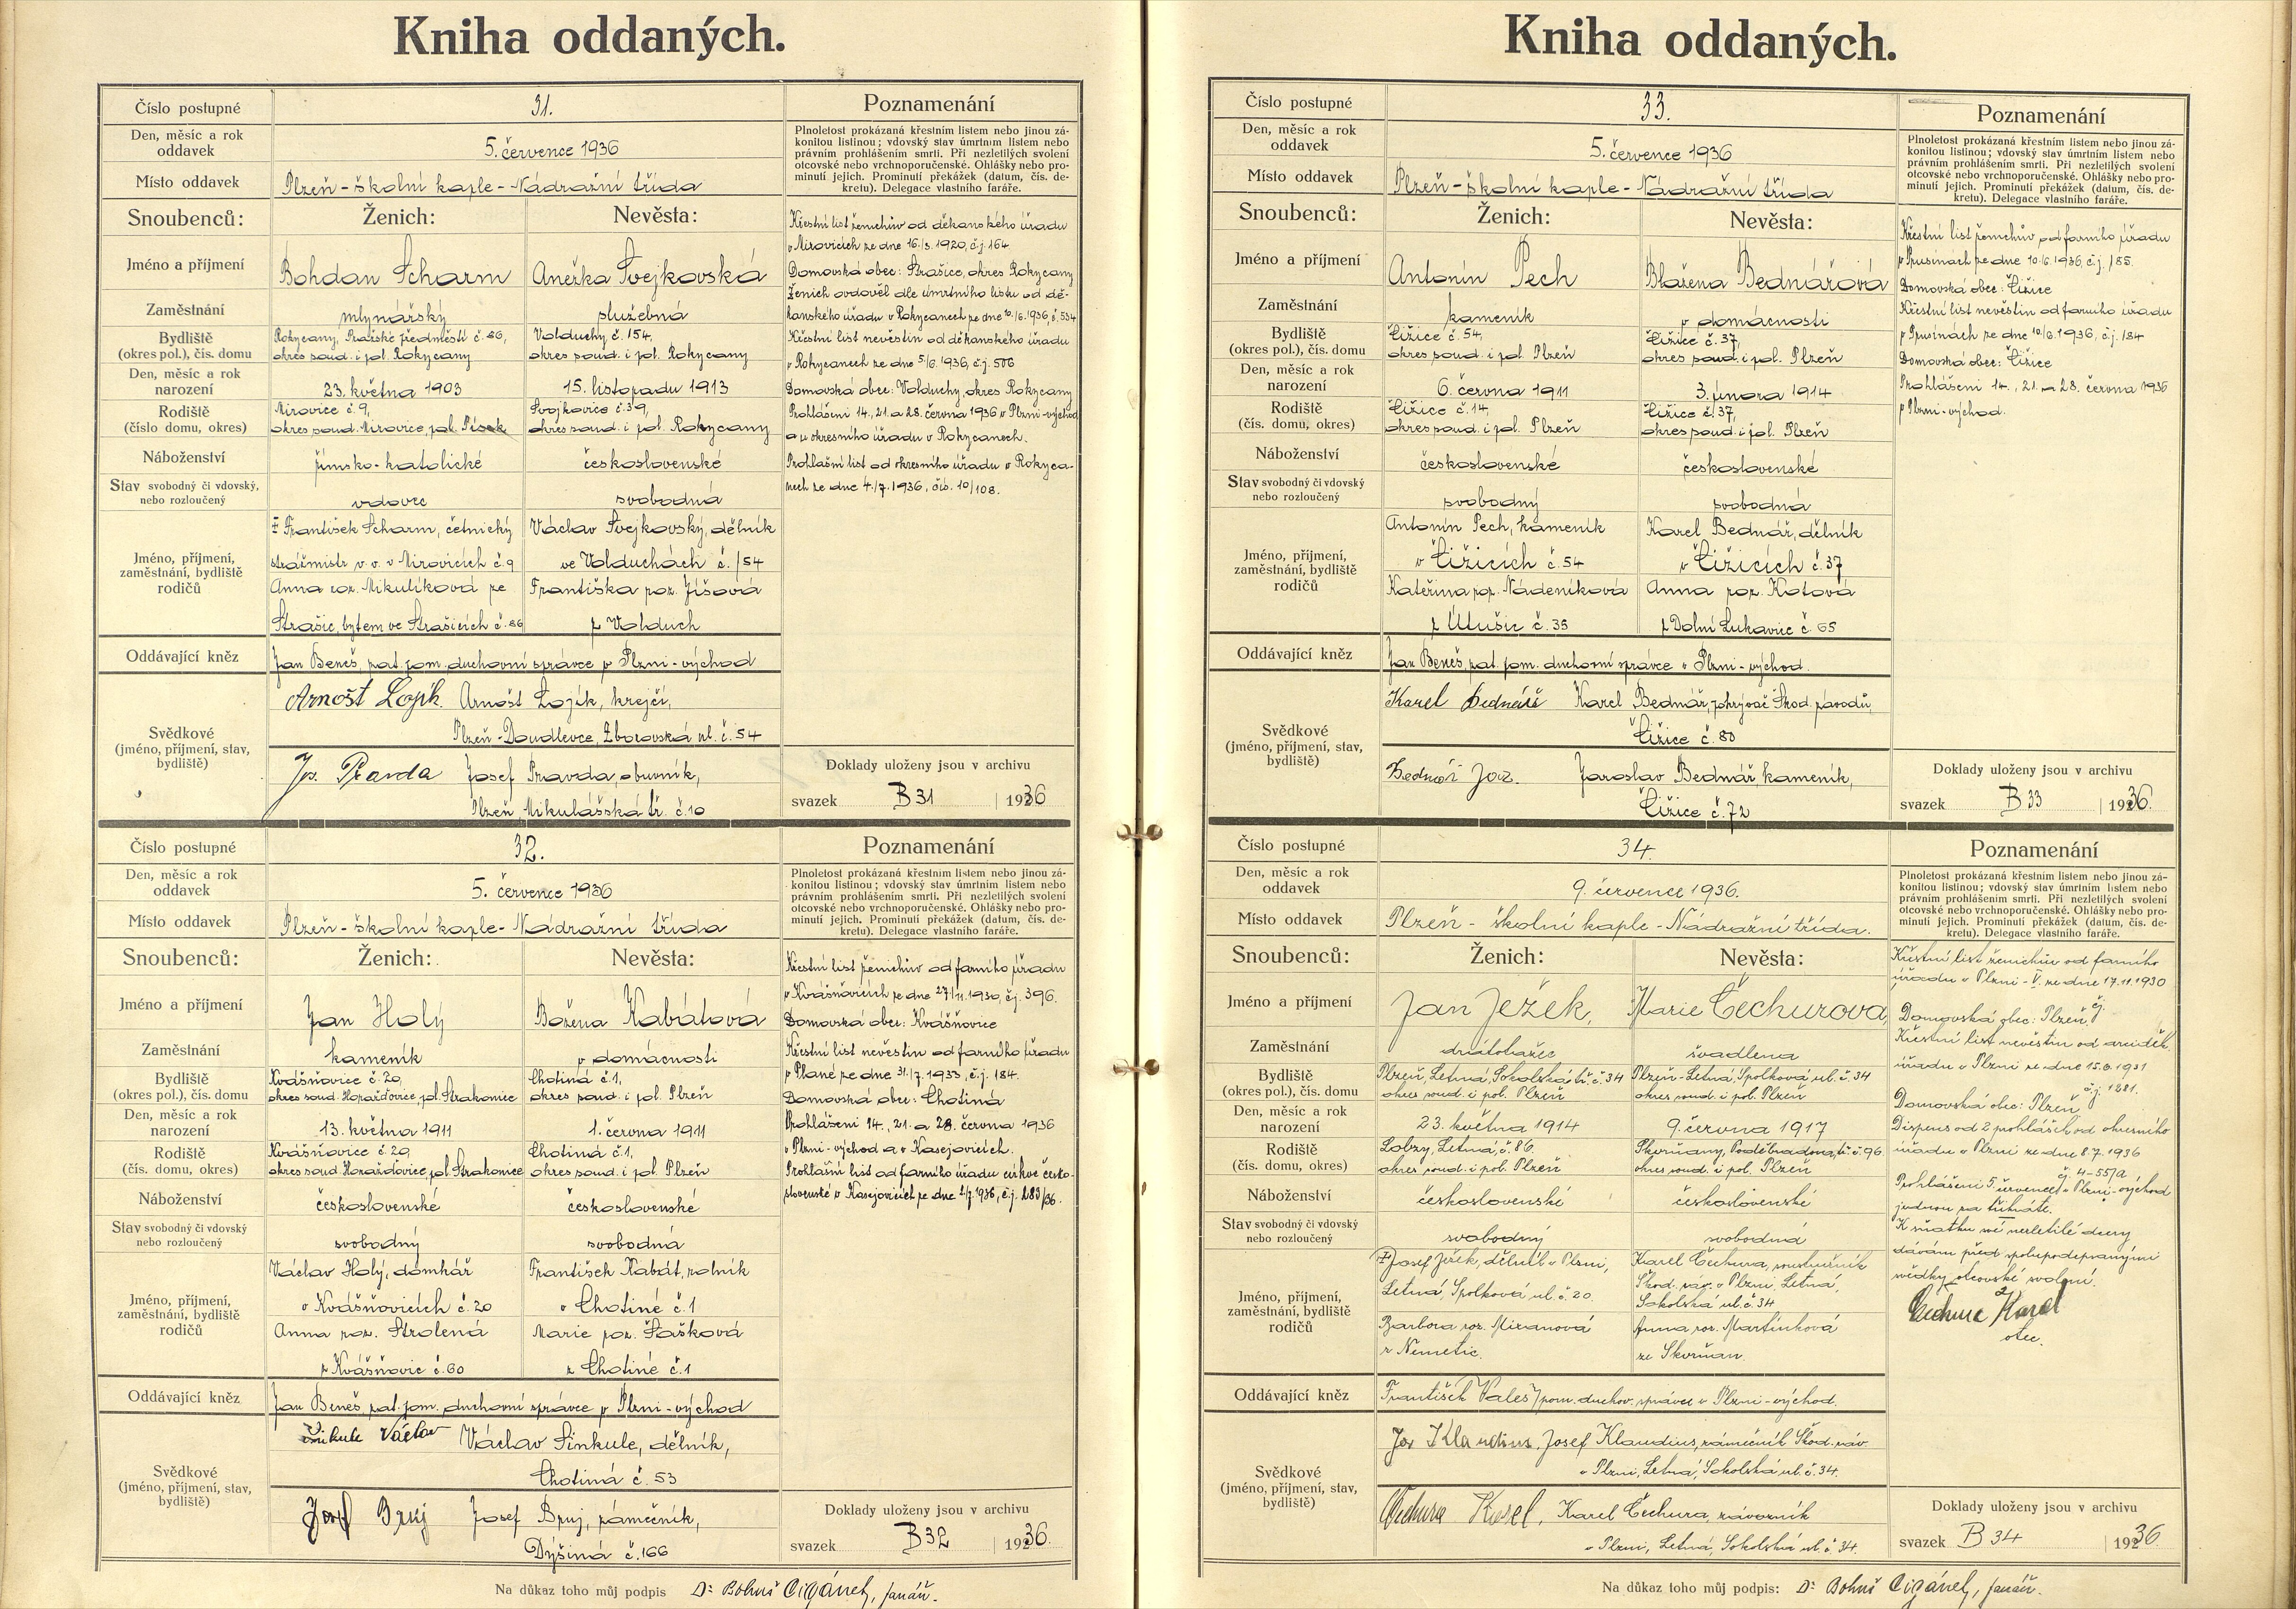 Kniha oddaných.
Číslo postupné 31. Poznamenání
Den, měsíc a rok oddavek 5. července 1936
Plnoletost prokázaná křestním listem nebo jinou zá-
konitou listinou; vdovský stav úmrtním listem nebo
právním prohlášením smrti. Při nezletilých svolení
otcovské nebo vrchnoporučenské. Ohlášky nebo pro-
minutí jejich. Prominutí překážek (datum, čís. de-
kretu). Delegace vlastního faráře.
Místo oddavek Plzeň - školní kaple - Nádražní třída
Snoubenců: Ženich: Nevěsta:
Jméno a příjmení Bohdan Scharm Anežka Švejkovská
Zaměstnání mlynářský služebná
Bydliště (okres pol.), čís. domu
Rokycany, Pražské předměstí č. 86, Volduchy č. 154,
okres soud. i pol. Rokycany okres soud. i pol. Rokycany
Den, měsíc a rok narození 23. května 1903 15. listopadu 1913
Rodiště (číslo domu, okres)
Mirovice č. 9, Svojkovice č. 39,
okres soud. Mirovice, pol. Písek okres soud. i pol. Rokycany
Náboženství římsko-katolické československé
Stav svobodný či vdovský, nebo rozloučený vdovec svobodná
Jméno, příjmení, zaměstnání, bydliště rodičů
František Scharm, četnický Václav Švejkovský, dělník
strážmistr v. v. v Mirovicích č. 9 ve Volduchách č. 154
Anna roz. Mikulíková ze Františka roz. Jíšová
Strašic, bytem ve Strašicích č. 86 z Volduch
Oddávající kněz Jan Beneš, pat. pom. duchovní správce v Plzni - východ
Svědkové (jméno, příjmení, stav, bydliště)
Arnošt Loják. Arnošt Loják, krejčí,
Plzeň - Doudlevce, Zborovská ul. č. 54
Jos. Pravda Josef Pravda, obuvník,
Plzeň, Mikulášská tř. č. 10
Křestní list ženichův od děkanského úřadu
v Mirovicích ze dne 16./3. 1920, č. j. 164.
Domovská obec: Strašice, okres Rokycany
Ženich ovdověl dle úmrtního listu od dě-
kanského úřadu v Rokycanech ze dne 10./6. 1936, č. 534
Křestní list nevěstin od děkanského úřadu
v Rokycanech ze dne 5/6. 1936, č. j. 506
Domovská obec: Volduchy, okres Rokycany
Prohlášeni 14., 21. a 28. června 1936 v Plzni-východ
a u okresního úřadu v Rokycanech.
Prohlašní list od okresního úřadu v Rokyca-
nech ze dne 4./7. 1936, čís. 10/108.
Doklady uloženy jsou v archivu
svazek B 31 1936
Číslo postupné 32. Poznamenání
Den, měsíc a rok oddavek 5. července 1936
Plnoletost prokázaná křestním listem nebo jinou zá-
konitou listinou; vdovský stav úmrtním listem nebo
právním prohlášením smrti. Při nezletilých svolení
otcovské nebo vrchnoporučenské. Ohlášky nebo pro-
minutí jejich. Prominutí překážek (datum, čís. de-
kretu). Delegace vlastního faráře.
Místo oddavek Plzeň - školní kaple - Nádražní třída
Snoubenců: Ženich: Nevěsta:
Jméno a příjmení Jan Holý Božena Kabátová
Zaměstnání kameník v domácnosti
Bydliště (okres pol.), čís. domu
Kvášňovice č. 20, Chotiná č. 1,
okres soud. Horažďovice, pol. Strakonice okres soud. i pol. Plzeň
Den, měsíc a rok narození 13. května 1911 1. června 1911
Rodiště (čís. domu, okres)
Kvášňovice č. 20, Chotiná č. 1,
okres soud. Horažďovice, pol. Strakonice okres soud. i pol. Plzeň
Náboženství československé československé
Stav svobodný či vdovský nebo rozloučený svobodný svobodná
Jméno, příjmení, zaměstnání, bydliště rodičů
Václav Holý, domkář František Kabát, rolník
v Kvášňovicích č. 20 v Chotiné č. 1
Anna roz. Strolená Marie roz. Šašková
z Kvášňovic č. 60 z Chotiné č. 1
Oddávající kněz Jan Beneš, pat. pom. duchovní správce v Plzni - východ
Svědkové (jméno, příjmení, stav, bydliště)
Šinkule Václav Václav Šinkule, dělník,
Chotiná č. 53
Josef Bruj Josef Bruj, zámečník,
Dýšiná č. 166
Křestní list ženichův od farního úřadu
v Kvášňovicích ze dne 27/11. 1930, č. j. 396.
Domovská obec: Kvášňovice
Křestní list nevěstin od farního úřadu
v Plané ze dne 31./7. 1933, č. j. 184.
Domovská obec: Chotiná
Prohlášeni 14., 21. a 28. června 1936
v Plzni - východ a v Kasejovicích.
Prohlašní list od farního úřadu církve česko-
slovenské v Kasejovicích ze dne 2./7. 1936, č. j. 283/36.
Doklady uloženy jsou v archivu
svazek B 32 1936.
Na důkaz toho můj podpis Dr. Bohuš Cigánek, farář.
Kniha oddaných.
Číslo postupné 33. Poznamenání
Den, měsíc a rok oddavek 5. července 1936
Plnoletost prokázaná křestním listem nebo jinou zá-
konitou listinou; vdovský stav úmrtním listem nebo
právním prohlášením smrti. Při nezletilých svolení
otcovské nebo vrchnoporučenské. Ohlášky nebo pro-
minutí jejich. Prominutí překážek (datum, čís. de-
kretu). Delegace vlastního faráře.
Místo oddavek Plzeň - školní kaple - Nádražní třída
Snoubenců: Ženich: Nevěsta:
Jméno a příjmení Antonín Pech Blažena Bednářová
Zaměstnání kameník v domácnosti
Bydliště (okres pol.), čís. domu
Čižice č. 54, Čižice č. 37,
okres soud. i pol. Plzeň okres soud. i pol. Plzeň
Den, měsíc a rok narození 6. června 1911 3. února 1914
Rodiště (čís. domu, okres)
Čižice č. 14, Čižice č. 37,
okres soud. i pol. Plzeň okres soud. i pol. Plzeň
Náboženství československé československé
Stav svobodný či vdovský nebo rozloučený svobodný svobodná
Jméno, příjmení, zaměstnání, bydliště rodičů
Antonín Pech, kameník Karel Bednář, dělník
v Čižicích č. 54 v Čižicích č. 37
Kateřina roz. Nádeníková Anna roz. Kotová
z Útušic č. 35 z Dolní Lukavic č. 65
Oddávající kněz Jan Beneš, pat. pom. duchovní správce v Plzni - východ.
Svědkové (jméno, příjmení, stav, bydliště)
Karel Bednář Karel Bednář, pokrývač Škod. závodů,
Čižice č. 80
Bednář Jar. Jaroslav Bednář, kameník,
Čižice č. 72
Křestní list ženichův od farního úřadu
v Prusinách ze dne 10./6. 1936, č. j. 185.
Domovská obec: Čižice
Křestní list nevěstin od farního úřadu
v Prusinách ze dne 10/6. 1936, č. j. 184
Domovská obec: Čižice
Prohlášeni 14., 21. a 28. června 1936
v Plzni - východ.
Doklady uloženy jsou v archivu
svazek B 33 1936.
Číslo postupné 34. Poznamenání
Den, měsíc a rok oddavek 9. července 1936.
Plnoletost prokázaná křestním listem nebo jinou zá-
konitou listinou; vdovský stav úmrtním listem nebo
právním prohlášením smrti. Při nezletilých svolení
otcovské nebo vrchnoporučenské. Ohlášky nebo pro-
minutí jejich. Prominutí překážek (datum, čís. de-
kretu). Delegace vlastního faráře.
Místo oddavek Plzeň - školní kaple - Nádražní třída.
Snoubenců: Ženich: Nevěsta:
Jméno a příjmení Jan Ježek, Marie Čechurova,
Zaměstnání drátotažec švadlena
Bydliště (okres pol.), čís. domu
Plzeň, Letná, Sokolská tř. č. 34 Plzeň - Letná, Spolková ul. č. 34
okres soud. i pol. Plzeň okres soud. i pol. Plzeň
Den, měsíc a rok narození 23. května 1914 9. června 1917
Rodiště (čís. domu, okres)
Lobzy, Letná, č. 86. Skvrňany, Poděbradova tř. č. 96
okres soud. i pol. Plzeň okres soud. i pol. Plzeň
Náboženství československé československé
Stav svobodný či vdovský nebo rozloučený svobodný svobodná
Jméno, příjmení, zaměstnání, bydliště rodičů
Josef Ježek, dělník v Plzni, Karel Čechura, soustružník
Letná, Spolková ul. č. 20. Škod. záv. v Plzni, Letná,
Sokolská ul. č. 34
Barbora roz. Mizanová Anna roz. Martínková
z Nemětic. ze Skvrňan.
Oddávající kněz František Valeš, pom. duchov. správce v Plzni - východ.
Svědkové (jméno, příjmení, stav, bydliště)
Jos Klaudius, Josef Klaudius, zámečník Škod. záv.
v Plzni, Letná, Sokolská ul. č. 34.
Čechura Karel, Karel Čechura, závozník
v Plzni, Letná, Sokolská ul. č. 34.
Křestní list ženichův od farního
úřadu v Plzni - V. ze dne 17.11.1930
č.j.
Domovská obec: Plzeň
Křestní list nevěstin od arciděk.
úřadu v Plzni ze dne 15.6.1931
č.j. 1881.
Domovská obec: Plzeň
Dispens od 2 prohlášek od okresního
úřadu v Plzni ze dne 8.7.1936
č. 4-55/A
Prohlášeni 5. července v Plzni - východ
jednou za třikráte.
K sňatku své nezletilé dcery
dávám před spolupodepsanými
svědky otcovské svolení.
Čechura Karel
otec.
Doklady uloženy jsou v archivu
svazek B 34 1936.
Na důkaz toho můj podpis: Dr. Bohuš Cigánek, farář.